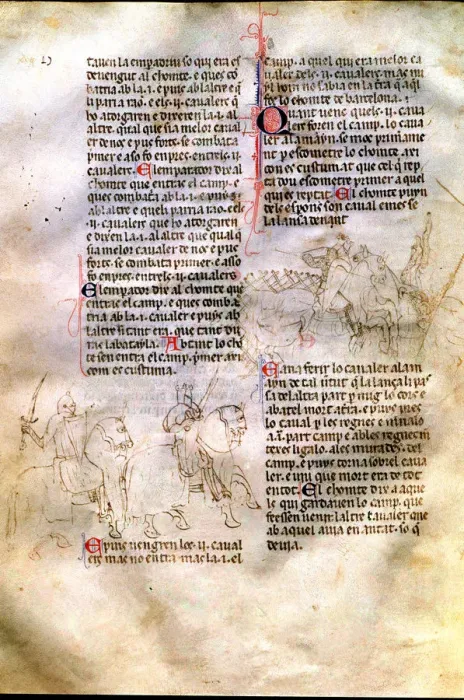 tauen la emparia so qui era es
deuengut al chomte. e ques cō
batria ab la .i. e puis ab laltre e q̄
li paria rao. e els .ii. caualers q̄
ho atorgaren e dixeren la .i. al
altre. qual sia sia melor caual
er de nos e pus forts. se combata
primer e axi fo enpres. entrels .ii.
caualers. El emparador dix al
chomte que entras el camp. e
ques combatria ab la .i. e puys
ab laltre e quel paria rao. e els
.ii. caualers que ho atorgaren
e dixeren la .i. al altre que qual q̄
sia melor caualer de nos e pus
forts. se combata primer. e axi
fo enpres entrels .ii. caualers
El emparador dix al chomte que
entras el camp. e ques comba
tria ab la .i. caualer e puys ab
laltre si tant era. que tant du
ras la batayla. Ab tant lo cho
te sen entra el camp. primer. axi
com es custuma.
E puis uengren los .ii. caual
ers mas no entra mas la .i. el
camp. a quel qui era melor ca
ualer dels .ii. caualers. mas nu
yl hom no sabia en la cort q̄ aq̄l
fos lo chomte de barcelona.
Quant uenc quels .ii. caua
lers foren el camp. lo caua
ler alamayn. se moc primame
nt per escometre lo chomte. axi
con es custum at que cel q̄ rep
ta deu escometre primer a quel
qui es reptat. El chomte puyn
dels espons son caual e mes se
la lansa denant
E ana ferir lo caualer alam
ayn de tal uirtut q̄ la lança li pas
sa del altra part p mig lo cors e
abatel mort a terra. e puys pres
lo caual p les regnes e mena lo
a .i. part camp e ab les regnes m
teres ligalo. a les murades. del
camp. e puys torna sobrel caua
ler. e uiu que mort era de tot
en tot. El chomte dix a aque
ls qui gardauen lo camp. que
feessen uenir laltre caualer que
ab aquel auia en antat. so q̄
deuia.